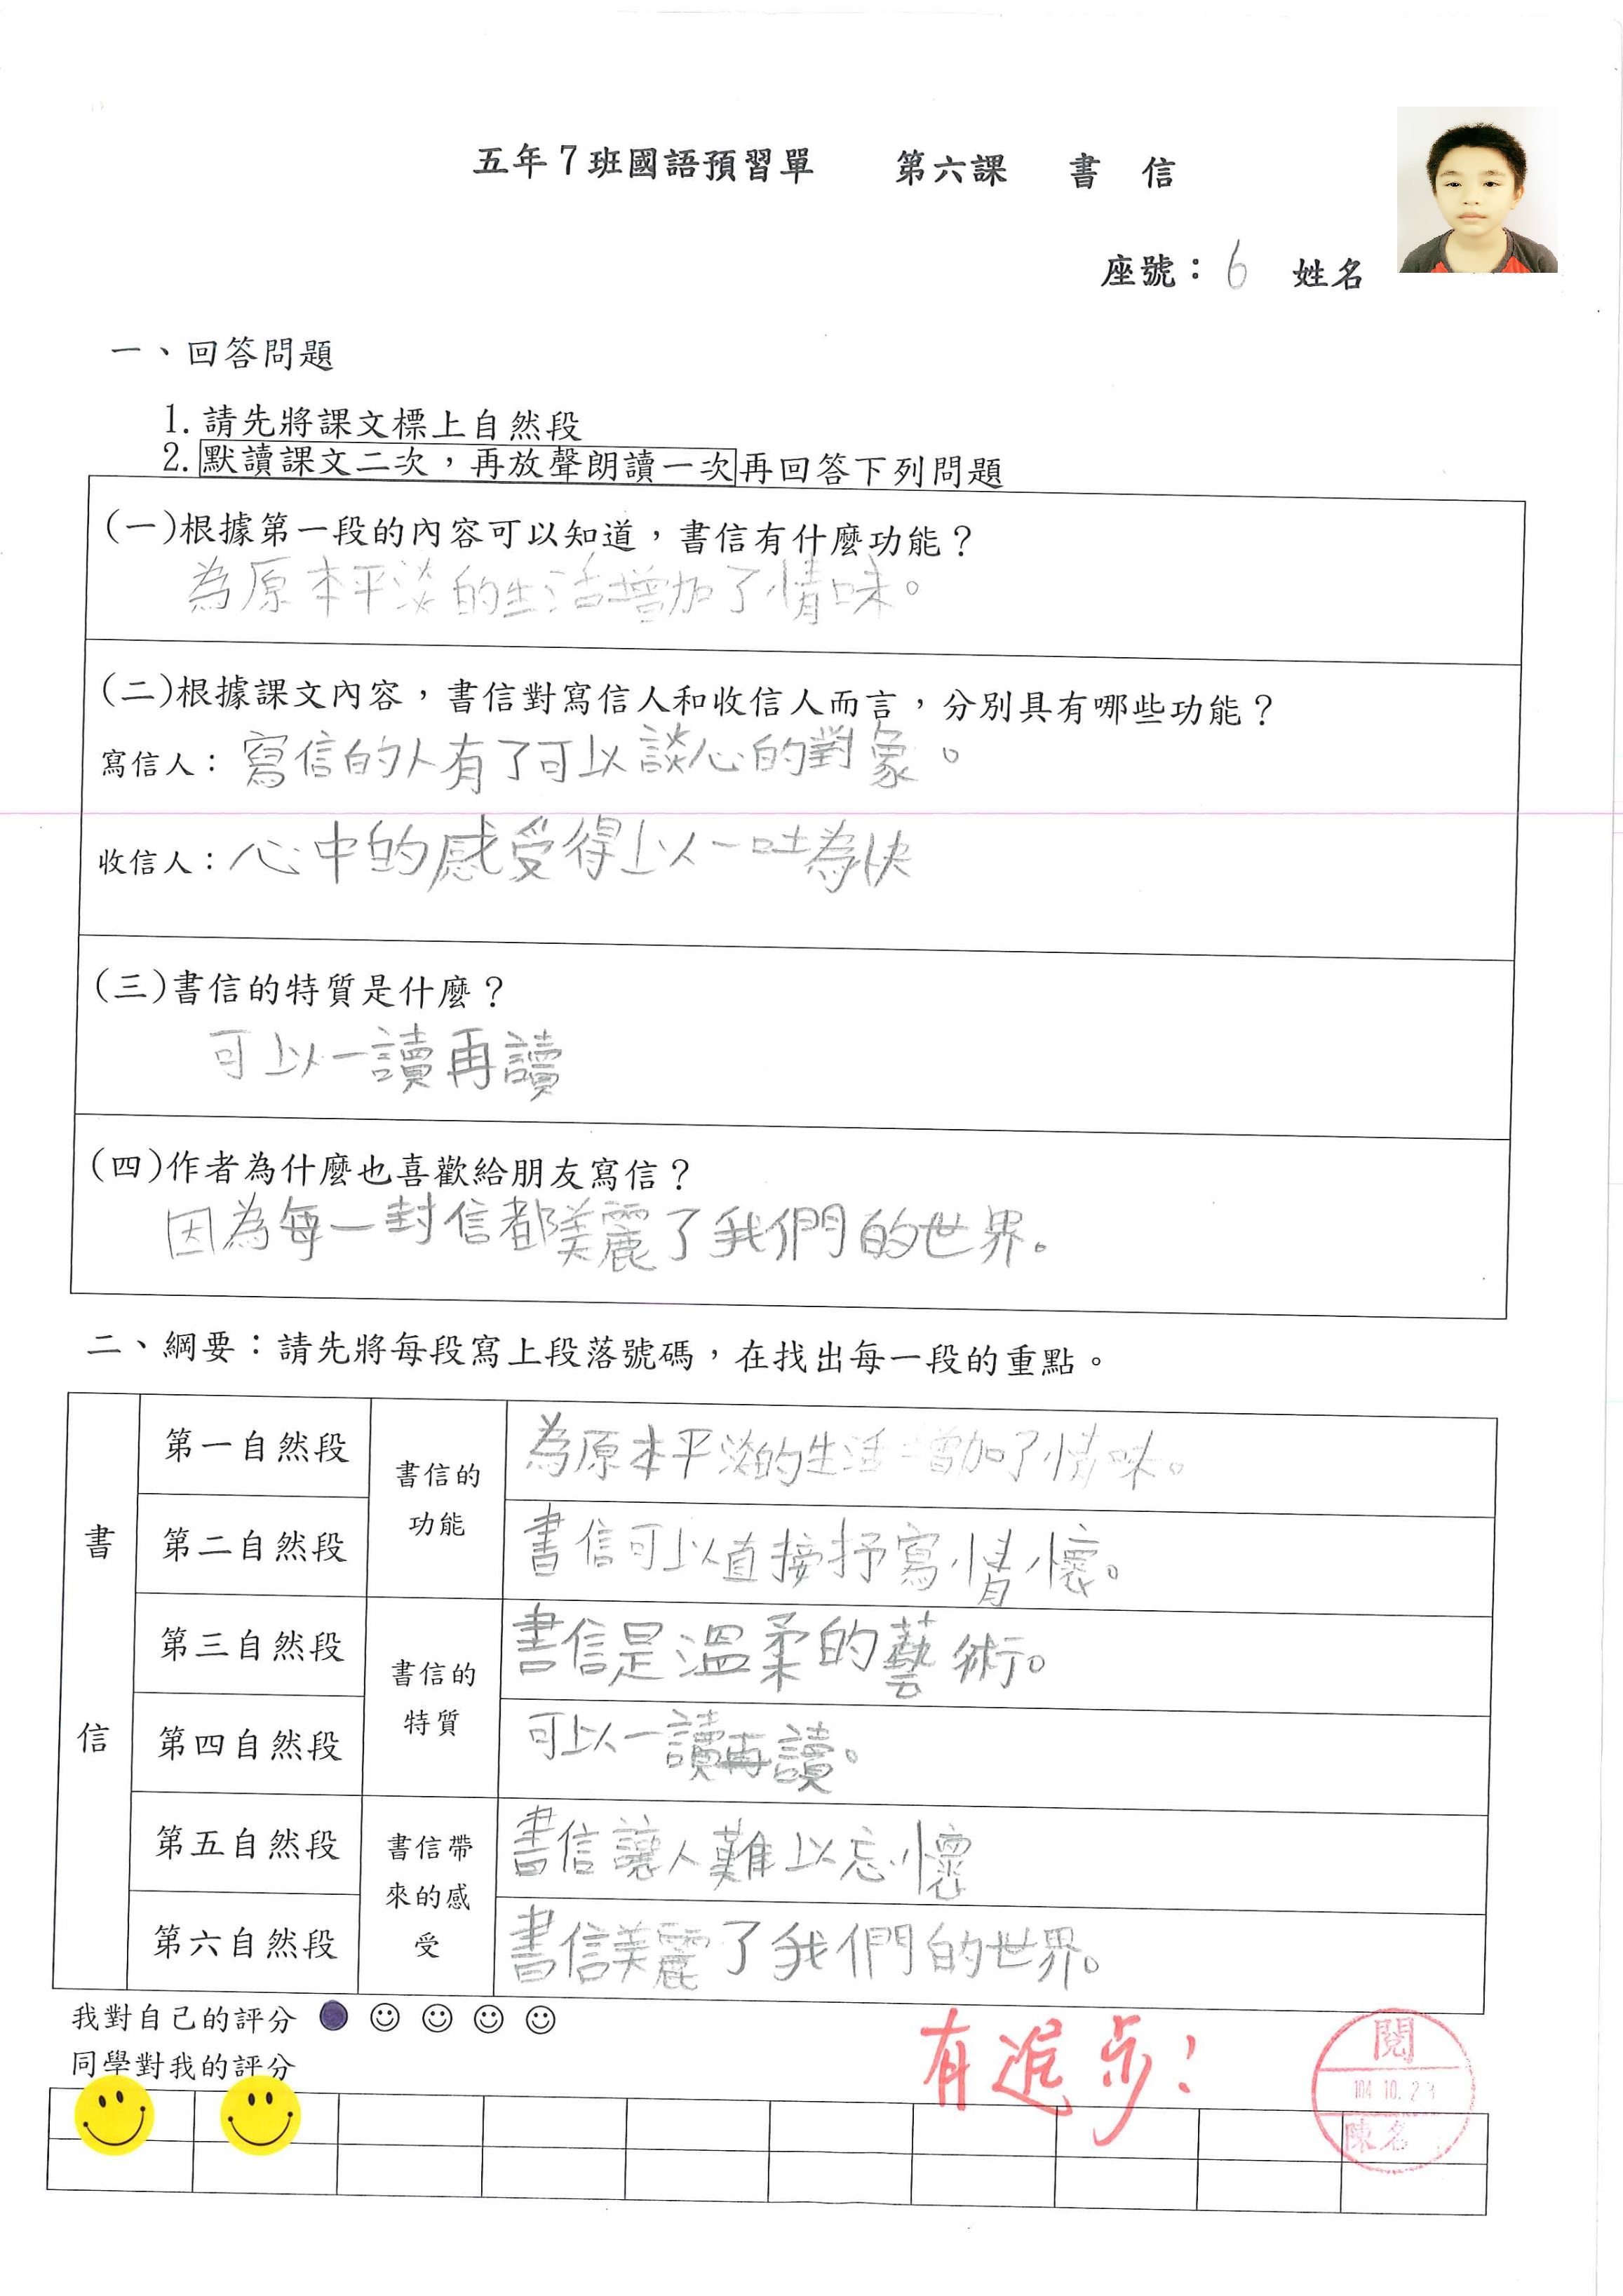 五年7班國語預習單　第六課　書　信
座號：6　姓名
一、回答問題
1.請先將課文標上自然段
2.默讀課文二次，再放聲朗讀一次再回答下列問題
(一)根據第一段的內容可以知道，書信有什麼功能？
為原本平淡的生活增加了情味。
(二)根據課文內容，書信對寫信人和收信人而言，分別具有哪些功能？
寫信人：寫信的人有了可以談心的對象。
收信人：心中的感受得以一吐為快
(三)書信的特質是什麼？
可以一讀再讀
(四)作者為什麼也喜歡給朋友寫信？
因為每一封信都美麗了我們的世界。
二、綱要：請先將每段寫上段落號碼，在找出每一段的重點。
書信
第一自然段
書信的功能
為原本平淡的生活增加了情味。
第二自然段
書信可以直接抒寫情懷。
第三自然段
書信的特質
書信是溫柔的藝術。
第四自然段
可以一讀再讀。
第五自然段
書信帶來的感受
書信讓人難以忘懷
第六自然段
書信美麗了我們的世界。
我對自己的評分
同學對我的評分
有進步！
閱
104.10.23
陳名